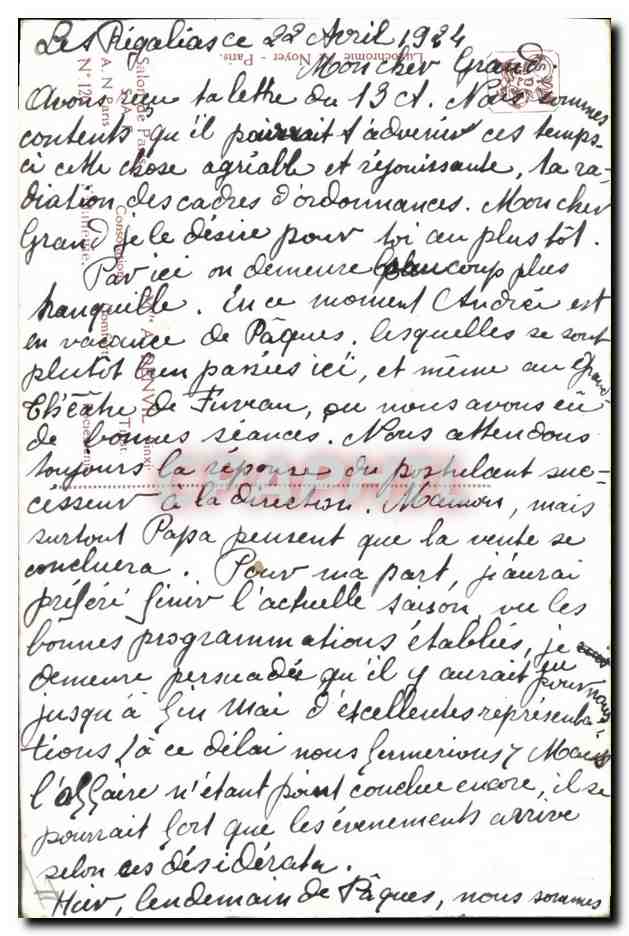 Les Régalias ce 22 Avril 1924
Mon cher Grand.
Avons reçu ta lettre du 13 ct. Nous sommes
contents qu'il pourrait t'advenir ces temps-
ci cette chose agréable et réjouissante, ta ra-
diation des cadres d'ordonnances. Mon cher
Grand je le désire pour toi au plus tôt.
Par ici on demeure beaucoup plus
tranquille. En ce moment André est
en vacance de Pâques, lesquelles se sont
plutôt bien passées ici, et même au Grand
Théâtre de Fuveau, ou nous avons eû
de bonnes séances. Nous attendons
toujours la réponse du postulant suc-
césseur à la direction. Maman, mais
surtout Papa pensent que la vente se
concluera. Pour ma part, j'aurai
préféré finir l'actuelle saison, vu les
bonnes programmations établies, je
demeure persuadé qu'il y aurait eu pour nous
jusqu'à fin Mai d'excellentes représenta-
tions (à ce délai nous fermerions) Mais
l'affaire n'étant point conclue encore, il se
pourrait fort que les évenements arrive
selon ses désidérata.
Hier, lendemain de Pâques, nous sommes
Luxochrome
Noyer - Paris.
Salon de Paris
A. N. Paris
N° 12